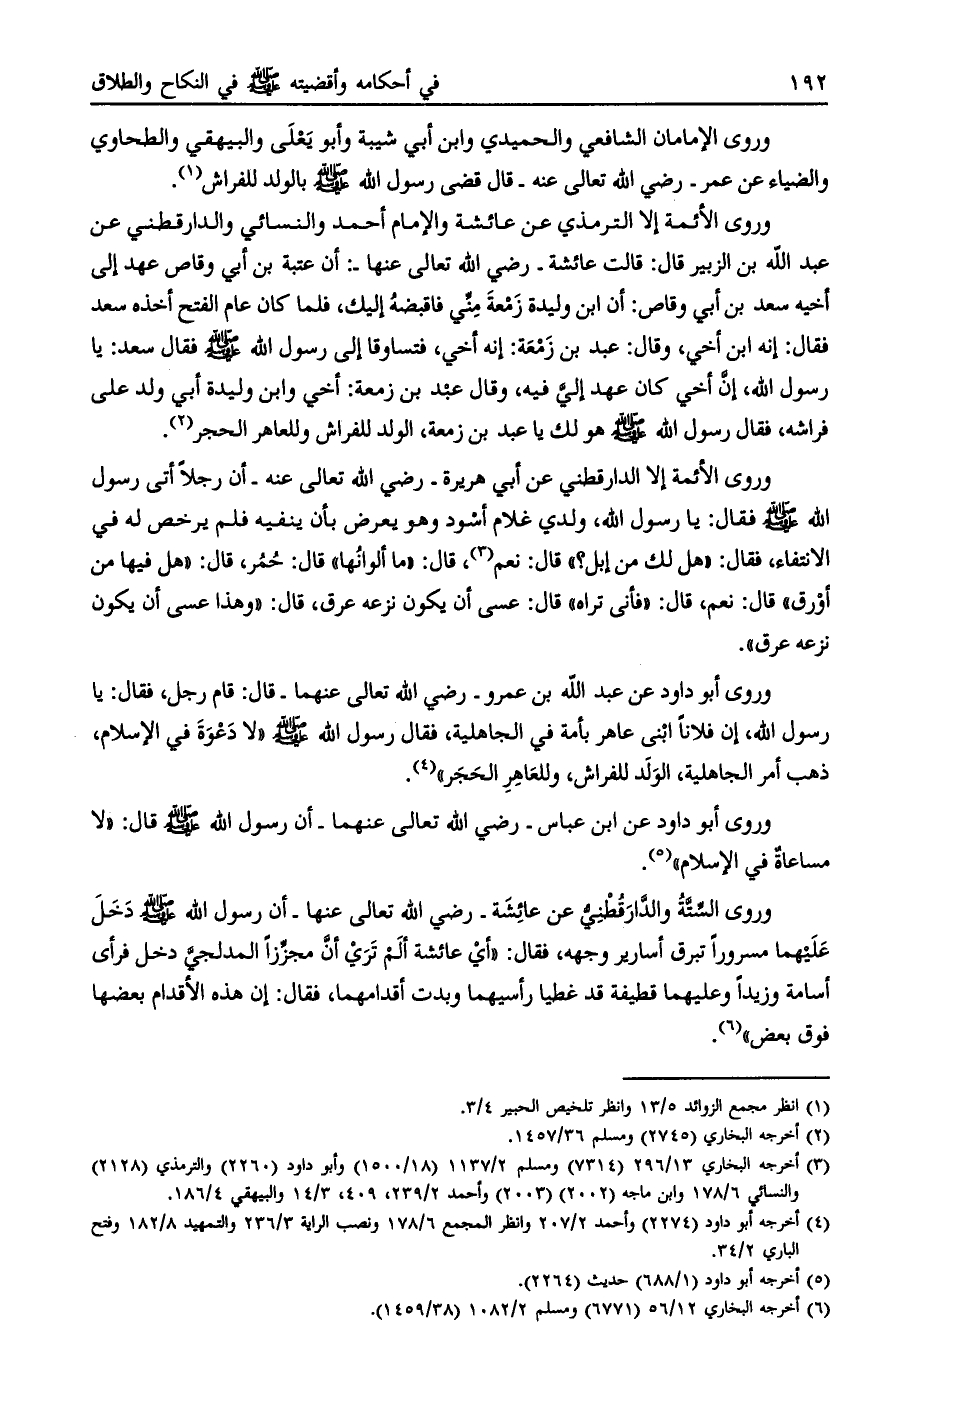 ١٩٢ في أحكامه وأقضيته ﷺ في النكاح والطلاق
وروى الإمامان الشافعي والحميدي وابن أبي شيبة وأبو يَعْلَى والبيهقي والطحاوي
والضياء عن عمر ـ رضي الله تعالى عنه ـ قال قضى رسول الله ﷺ بالولد للفراش(١).
وروى الأئمة إلا الترمذي عن عائشة والإمام أحمد والنسائي والدارقطني عن
عبد اللّه بن الزبير قال: قالت عائشة ـ رضي الله تعالى عنها ـ: أن عتبة بن أبي وقاص عهد إلى
أخيه سعد بن أبي وقاص: أن ابن وليدة زَمْعةَ مِنِّي فاقبضهُ إليك، فلما كان عام الفتح أخذه سعد
فقال: إنه ابن أخي، وقال: عبد بن زَمْعَة: إنه أخي، فتساوقا إلى رسول الله ﷺ فقال سعد: يا
رسول الله، إنَّ أخي كان عهد إليَّ فيه، وقال عبْد بن زمعة: أخي وابن وليدة أبي ولد على
فراشه، فقال رسول الله ﷺ هو لك يا عبد بن زمعة، الولد للفراش وللعاهر الحجر(٢).
وروى الأئمة إلا الدارقطني عن أبي هريرة ـ رضي الله تعالى عنه ـ أن رجلاً أتى رسول
الله ﷺ فقال: يا رسول الله، ولدي غلام أسْود وهو يعرض بأن ينفيه فلم يرخص له في
الانتفاء، فقال: «هل لك من إبل؟» قال: نعم(٣)، قال: «ما ألوانُها» قال: حُمُر، قال: «هل فيها من
أوْرق» قال: نعم، قال: «فأنى تراه» قال: عسى أن يكون نزعه عرق، قال: «وهذا عسى أن يكون
نزعه عرق».
وروى أبو داود عن عبد اللّه بن عمرو ـ رضي الله تعالى عنهما ـ قال: قام رجل، فقال: يا
رسول الله، إن فلاناً ابْنى عاهر بأمة في الجاهلية، فقال رسول الله ﷺ «لا دَعْوَةَ في الإسلام،
ذهب أمر الجاهلية، الوَلَد للفراش، وللعَاهِرِ الحَجَر»(٤).
وروى أبو داود عن ابن عباس ـ رضي الله تعالى عنهما ـ أن رسول الله ﷺ قال: «لا
مساعاةٌ في الإسلام»(٥).
وروى السِّتَّةُ والدَّارَقُطْنِيُّ عن عائِشَة ـ رضي الله تعالى عنها ـ أن رسول الله ﷺ دَخَلَ
عَلَيْهما مسروراً تبرق أسارير وجهه، فقال: «أيْ عائشة ألَمْ تَرَيْ أنَّ مجزِّزاً المدلجيَّ دخل فرأى
أسامة وزيداً وعليهما قطيفة قد غطيا رأسيهما وبدت أقدامهما، فقال: إن هذه الأقدام بعضها
فوق بعض»(٦).
(١) انظر مجمع الزوائد ١٣/٥ وانظر تلخيص الحبير ٣/٤.
(٢) أخرجه البخاري (٢٧٤٥) ومسلم ١٤٥٧/٣٦.
(٣) أخرجه البخاري ٢٩٦/١٣ (٧٣١٤) ومسلم ١١٣٧/٢ (١٥٠٠/١٨) وأبو داود (٢٢٦٠) والترمذي (٢١٢٨)
والنسائي ١٧٨/٦ وابن ماجه (٢٠٠٢) (٢٠٠٣) وأحمد ٢٣٩/٢، ٤٠٩، ١٤/٣ والبيهقي ١٨٦/٤.
(٤) أخرجه أبو داود (٢٢٧٤) وأحمد ٢٠٧/٢ وانظر المجمع ١٧٨/٦ ونصب الراية ٢٣٦/٣ والتمهيد ١٨٢/٨ وفتح
الباري ٣٤/٢.
(٥) أخرجه أبو داود (٦٨٨/١) حديث (٢٢٦٤).
(٦) أخرجه البخاري ٥٦/١٢ (٦٧٧١) ومسلم ١٠٨٢/٢ (١٤٥٩/٣٨).